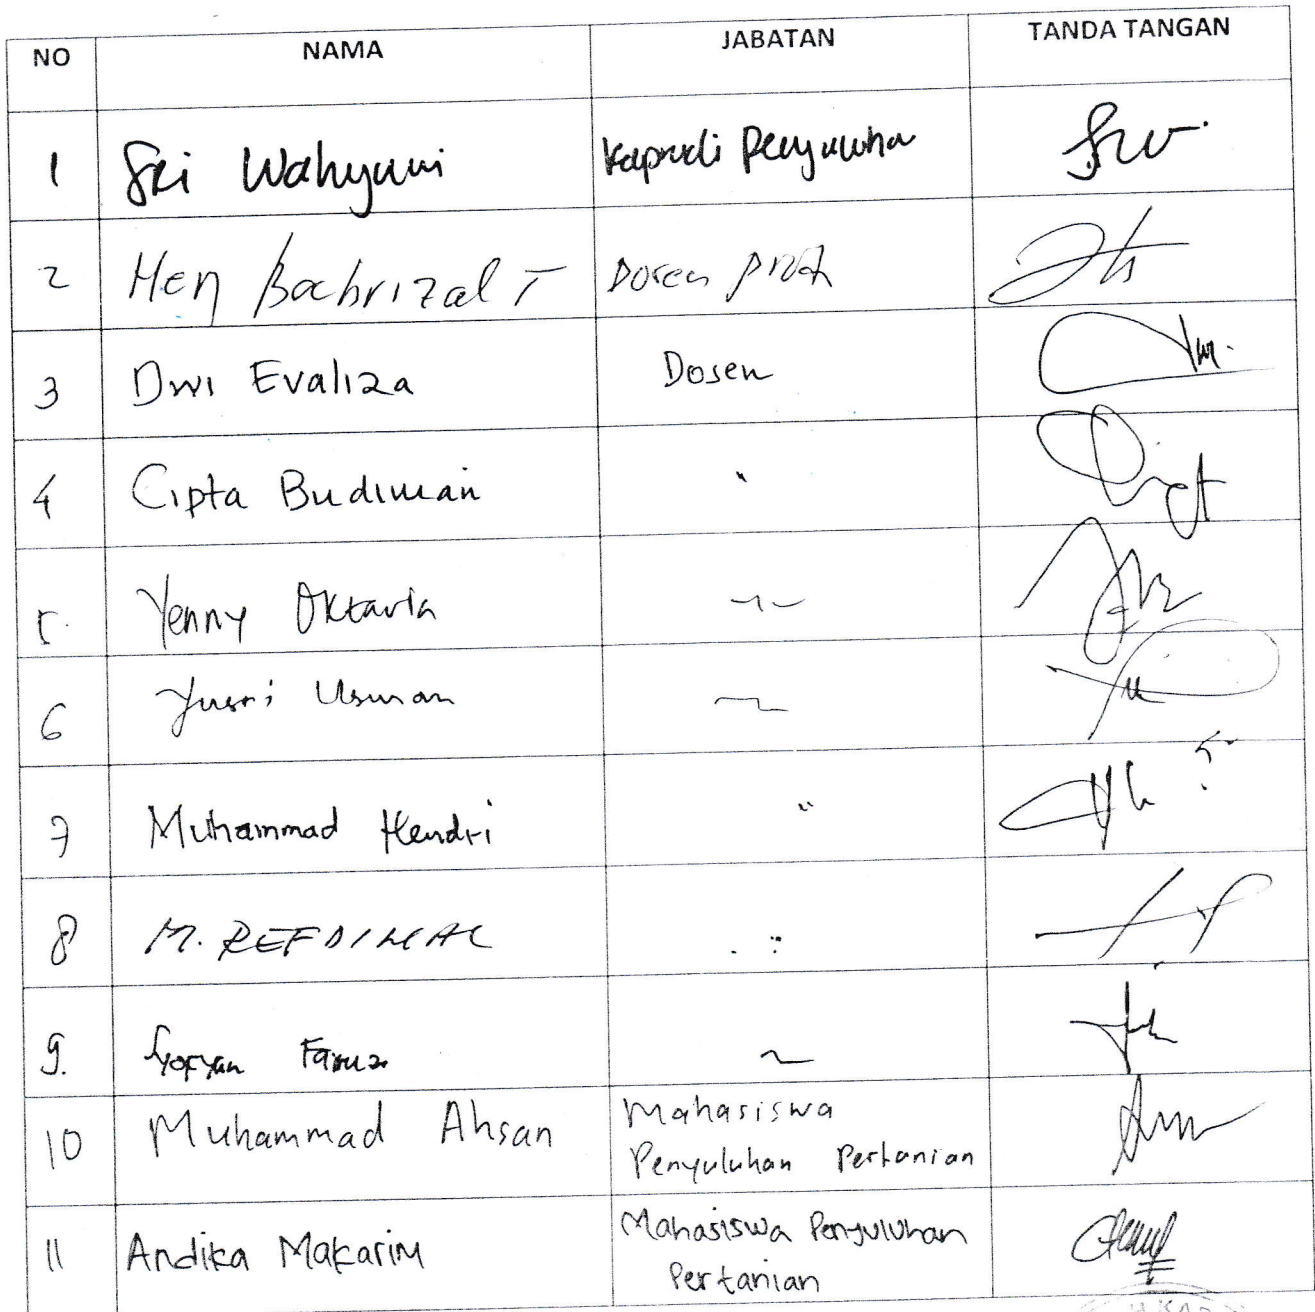 NO NAMA JABATAN TANDA TANGAN
1 Sri Wahyuni Kaprodi Penyuluha
2 Hery Bachrizal T Dosen
3 Dwi Evaliza Dosen
4 Cipta Budiman "
5. Yenny Oktavia
6 Yusri Usman
7 Muhammad Hendri "
8 M. REFDINAL "
9. Sofyan
10 Muhammad Ahsan Mahasiswa
Penyuluhan Pertanian
11 Andika Makarim Mahasiswa Penyuluhan
Pertanian